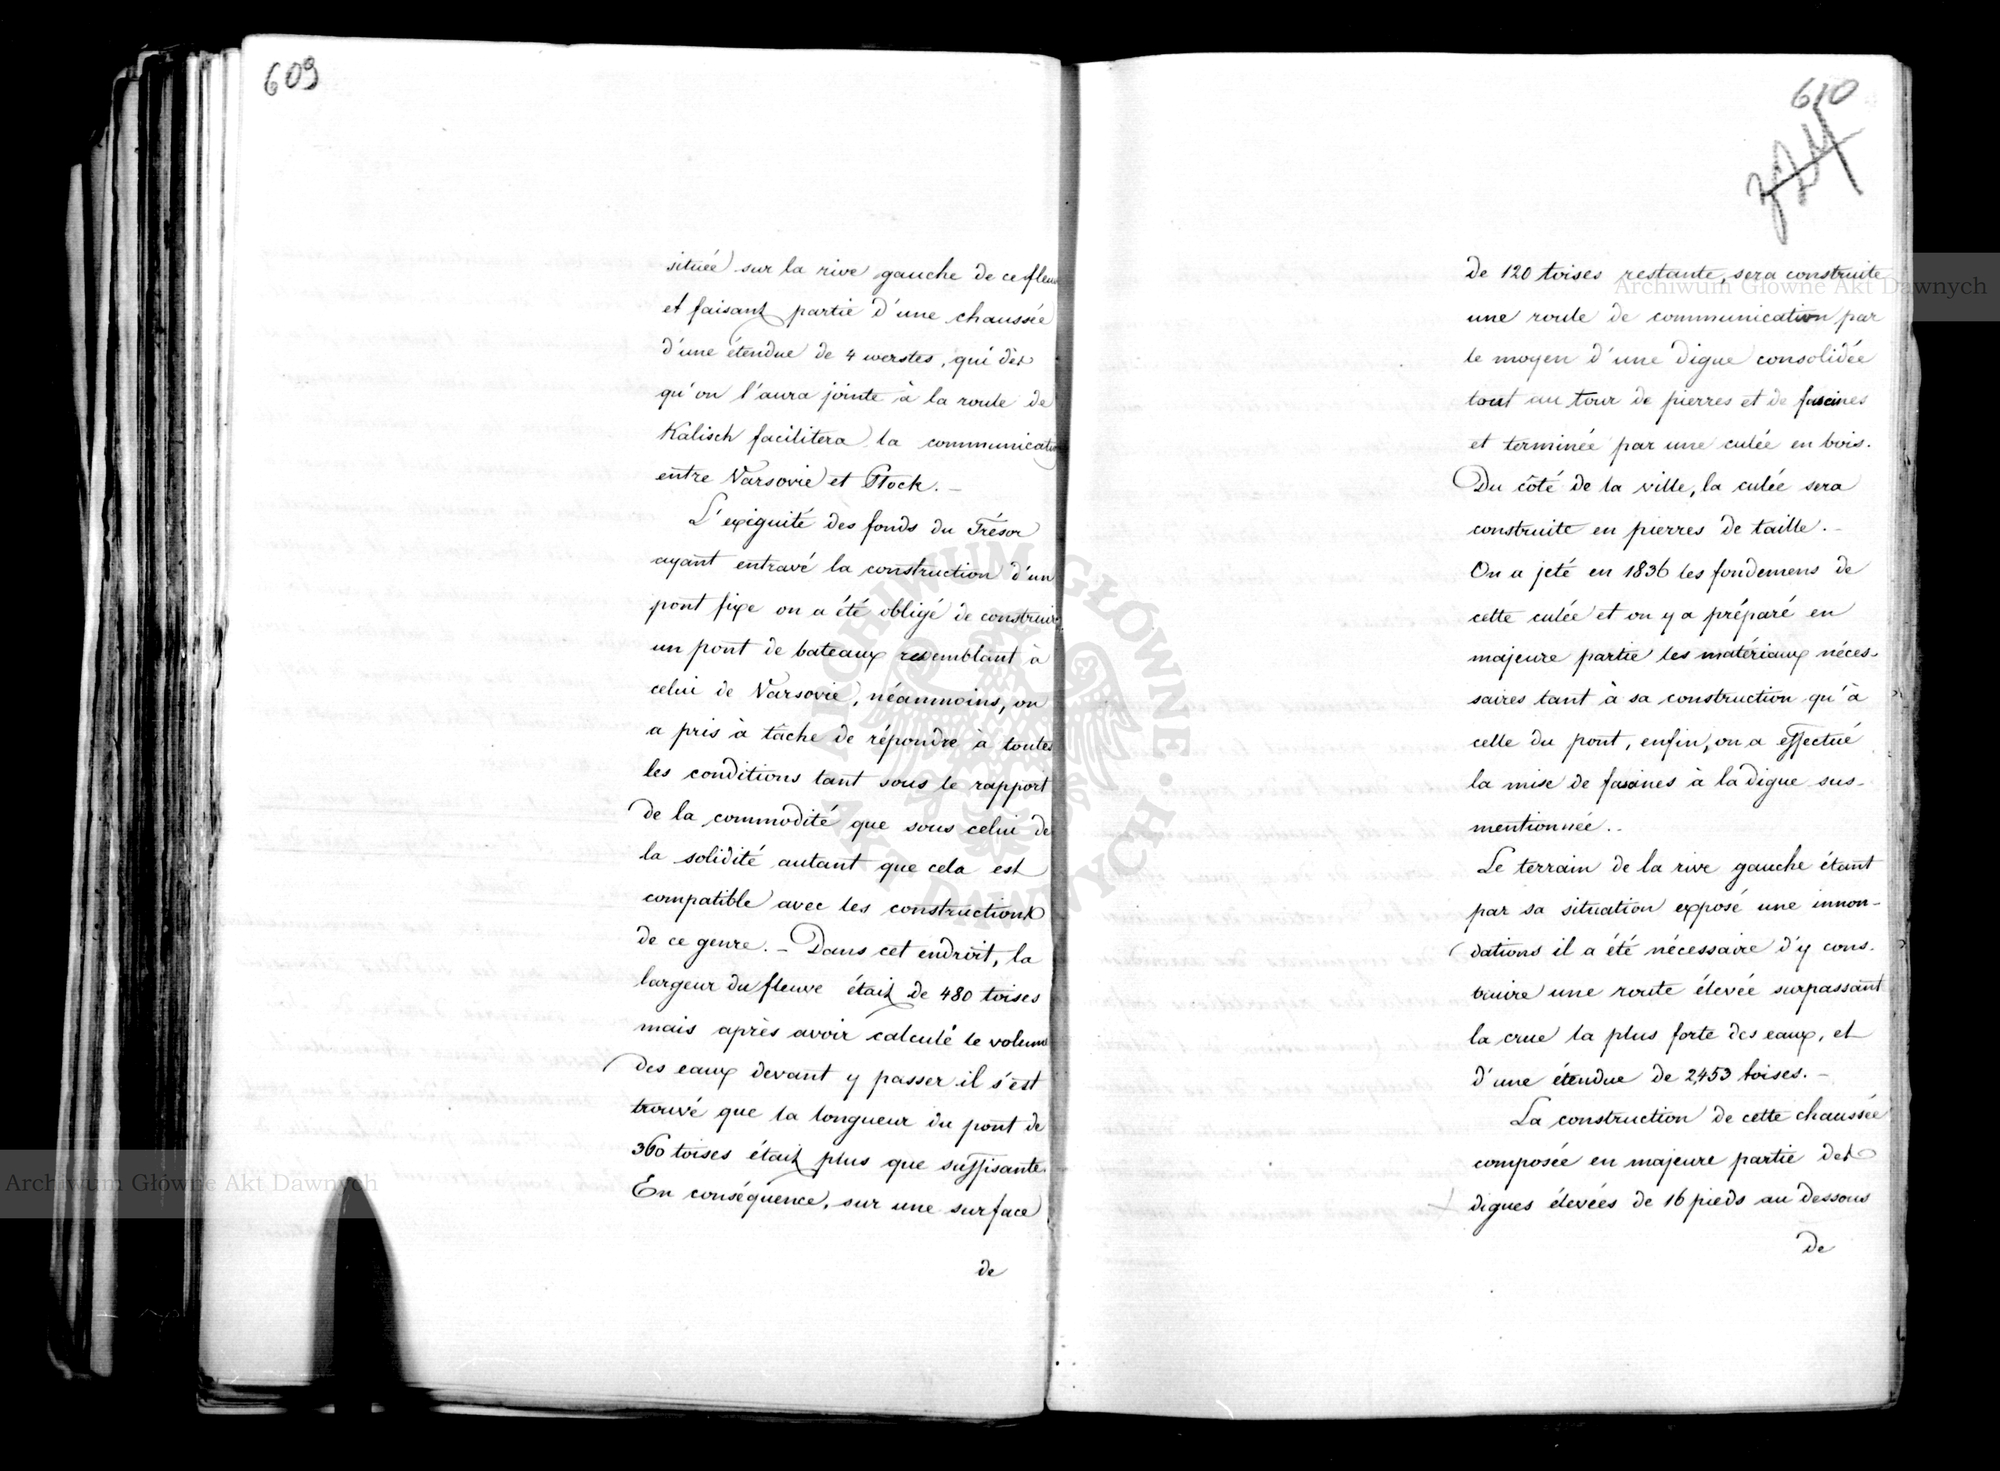 609
située sur la rive gauche de ce fleuve
et faisant partie d'une chaussée
d'une étendue de 4 werstes, qui dès
qu'on l'aura jointe à la route de
Kalisch facilitera la communication
entre Varsovie et Plock. –
L'exiguité des fonds du Trésor
ayant entravé la construction d'un
pont fixe on a été obligé de construire
un pont de bateaux resemblant à
celui de Varsovie, néanmoins, on
a pris à tâche de répondre à toutes
les conditions tant sous le rapport
de la commodité que sous celui de
la solidité autant que cela est
compatible avec les constructions
de ce genre. – Dans cet endroit, la
largeur du fleuve était de 480 toises
mais après avoir calculé le volume
des eaux devant y passer il s'est
trouvé que la longueur du pont de
360 toises était plus que suffisante.
En conséquence, sur une surface
de
610
de 120 toises restante, sera construite
une route de communication par
le moyen d'une digue consolidée
tout au tour de pierres et de fascines
et terminée par une culée en bois.
Du côté de la ville, la culée sera
construite en pierres de taille. –
On a jeté en 1836 les fondemens de
cette culée et on y a préparé en
majeure partie les matériaux néces-
saires tant à sa construction qu'à
celle du pont, enfin, on a effectué
la mise de fascines à la digue sus-
mentionnée..
Le terrain de la rive gauche étant
par sa situation exposé une innon-
dations il a été nécessaire d'y cons-
truire une route élevée surpassant
la crue la plus forte des eaux, et
d'une étendue de 2453 toises. –
La construction de cette chaussée
composée en majeure partie des
digues élevées de 16 pieds au dessous
de
Archiwum Główne Akt Dawnych
Archiwum Główne Akt Dawnych
ARCHIWUM GŁÓWNE AKT DAWNYCH